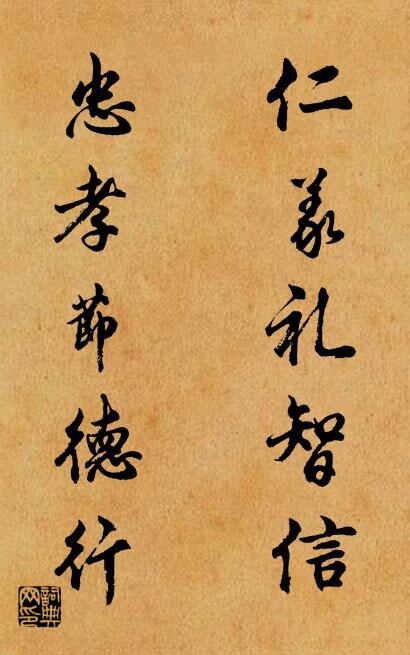 仁義礼智信
忠孝節德行
詞典
网印